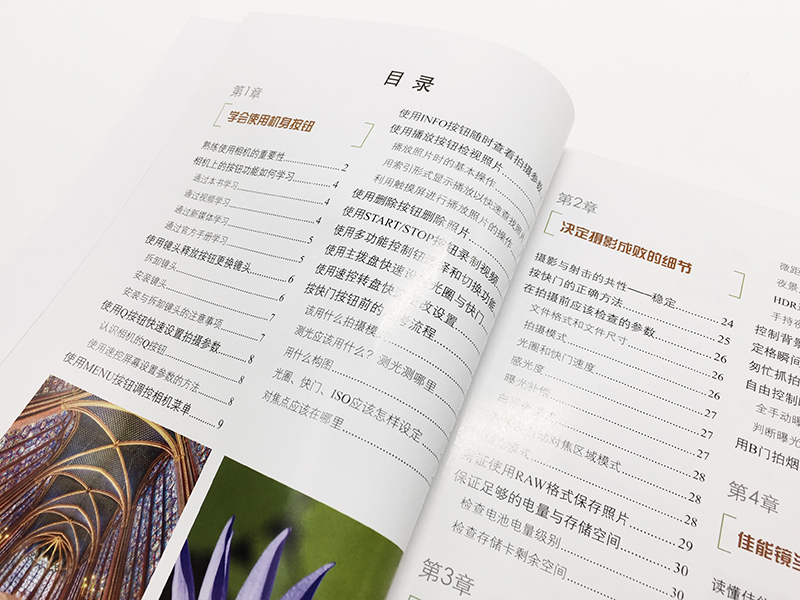 目 录
第1章
学会使用机身按钮
熟练使用相机的重要性 2
相机上的按钮功能如何学习 4
通过本书学习 4
通过视频学习 4
通过新媒体学习 5
通过官方手册学习 5
使用镜头释放按钮更换镜头 6
拆卸镜头 6
安装镜头 7
安装与拆卸镜头的注意事项 7
使用Q按钮快速设置拍摄参数 8
认识相机的Q按钮 8
使用速控屏幕设置参数的方法 8
使用MENU按钮调控相机菜单 9
使用INFO按钮随时查看拍摄参数
使用播放按钮检视照片
播放照片时的基本操作
用索引形式显示播放以快速查找照片
利用触摸屏进行播放照片的操作
使用删除按钮删除照片
使用START/STOP按钮录制视频
使用多功能控制钮选择和切换功能
使用主拨盘快速设置光圈与快门
使用速控转盘快速更改设置
按快门按钮前的思考流程
该用什么拍摄模式
测光应该用什么？测光测哪里
用什么构图
光圈、快门、ISO应该怎样设定
对焦点应该在哪里
第2章
决定摄影成败的细节
摄影与射击的共性——稳定 24
按快门的正确方法 25
在拍摄前应该检查的参数 26
文件格式和文件尺寸 26
拍摄模式 26
光圈和快门速度 27
感光度 27
曝光补偿 27
对焦区域模式 28
模式 28
使用RAW格式保存照片 28
保证足够的电量与存储空间 29
检查电池电量级别 30
检查存储卡剩余空间 30
第3章
微距
夜景
HDR
手持夜
控制背景
定格瞬间
匆忙抓拍
自由控制
全手动曝
判断曝光
用B门拍烟
第4章
佳能镜
读懂佳